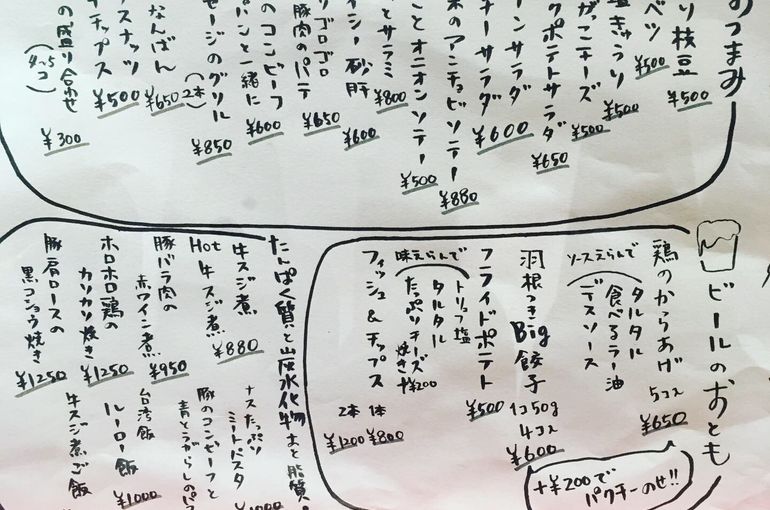 おつまみ
り枝豆
¥500
ベツ
¥500
きゅうり
¥500
がっこチーズ
¥500
クポテトサラダ
¥650
ーンサラダ
¥600
チーサラダ
のアンチョビソテー
¥880
ことオニオンソテー
¥500
とサラミ
¥800
シー砂肝
¥600
リゴロゴロ
豚肉のパテ
¥650
のコンビーフ
パンと一緒に
¥600
セージのグリル
(2本)
¥850
なんばん
¥650
スナッツ
チップス
¥500
の盛り合わせ
(4〜5コ)
¥300
ビールのおとも
鶏のからあげ
5コ入
¥650
ソースえらんで
タルタル
食べるラー油
デスソース
+¥200で
パクチーのせ!!
羽根つきBig餃子
1コ50g
4コ入
¥600
フライドポテト
¥500
味えらんで
トリュフ塩
タルタル
たっぷりチーズ焼き+¥200
フィッシュ&チップス
1本
¥800
2本
¥1200
たんぱく質と炭水化物あと脂質。
牛スジ煮
¥880
Hot牛スジ煮
豚バラ肉の
赤ワイン煮
¥950
ホロホロ鶏の
カリカリ焼き
¥1250
豚肩ロースの
黒コショウ焼き
¥1250
ナスたっぷり
ミートパスタ
豚のコンビーフと
青とうがらしのパ
台湾飯
ルーロー飯
¥1000
牛スジ煮ご飯